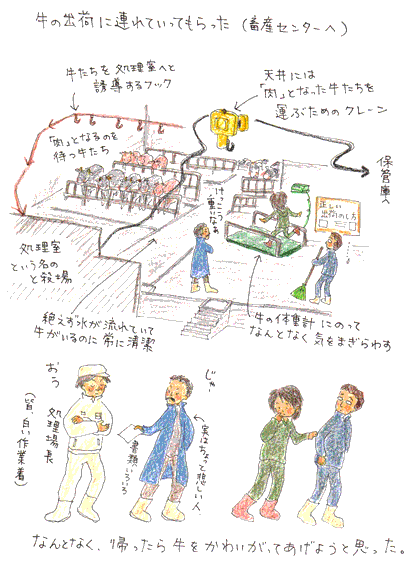 牛の出荷に連れていってもらった（畜産センターへ）
牛たちを処理室へと
誘導するフック
「肉」となるのを
待つ牛たち
天井には
「肉」となった牛たちを
運ぶためのクレーン
保管庫へ
けっこう
重いなぁ
正しい
出荷のし方
処理室
という名の
と殺場
絶えず水が流れていて
牛がいるのに常に清潔
牛の体重計にのって
なんとなく気をまぎらわす
おう
処理場長
（皆、白い作業着）
じゃー
書類いろいろ
実はちょって悲しい人。
なんとなく、帰ったら牛をかわいがってあげようと思った。